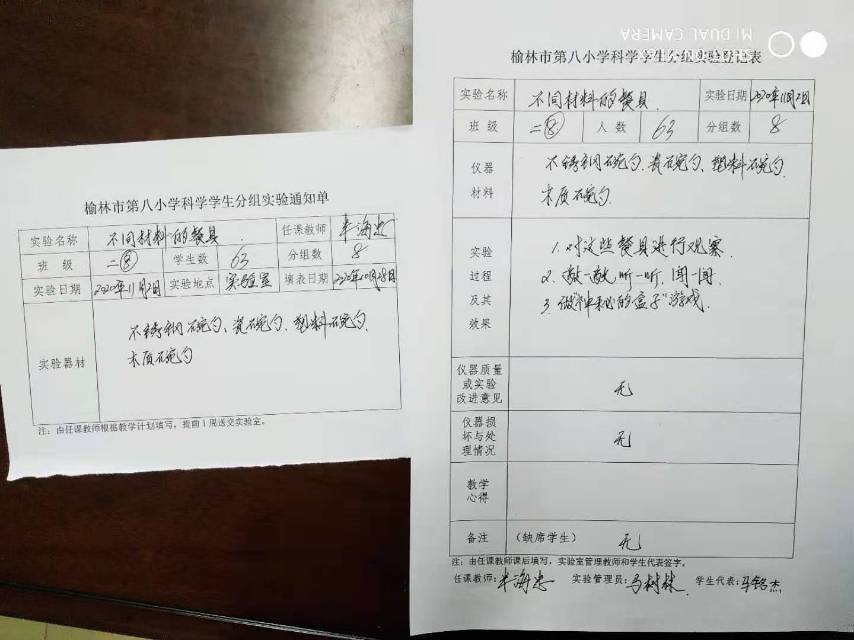 榆林市第八小学科学学生分组实验通知单
实验名称 不同材料的餐具 任课教师 海忠
班 级 二⑧ 学生数 63 分组数 8
实验日期 2020年11月2日 实验地点 实验室 填表日期 2020年10月28日
实验器材 不锈钢碗勺、瓷碗勺、塑料碗勺、
木质碗勺
注：由任课教师根据教学计划填写，提前1周送交实验室。
MI DUAL CAMERA
榆林市第八小学科学学生分组实验登记表
实验名称 不同材料的餐具 实验日期 2020年11月2日
班 级 二⑧ 人 数 63 分组数 8
仪器
材料
不锈钢碗勺、瓷碗勺、塑料碗勺、
木质碗勺
实验
过程
及其
效果
1.对这些餐具进行观察.
2.敲一敲,听一听,闻一闻.
3.做"神秘的盒子"游戏.
仪器质量
或实验
改进意见
无
仪器损
坏与处
理情况
无
教学
心得
备注 （缺席学生） 无
注：由任课教师课后填写，实验室管理教师和学生代表签字。
任课教师: 海忠 实验管理员: 马树林 学生代表: 马铭杰